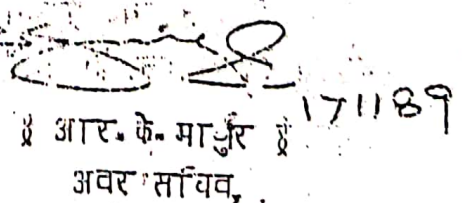 171189
॥ आर. के. माथुर ॥
अवर सचिव,